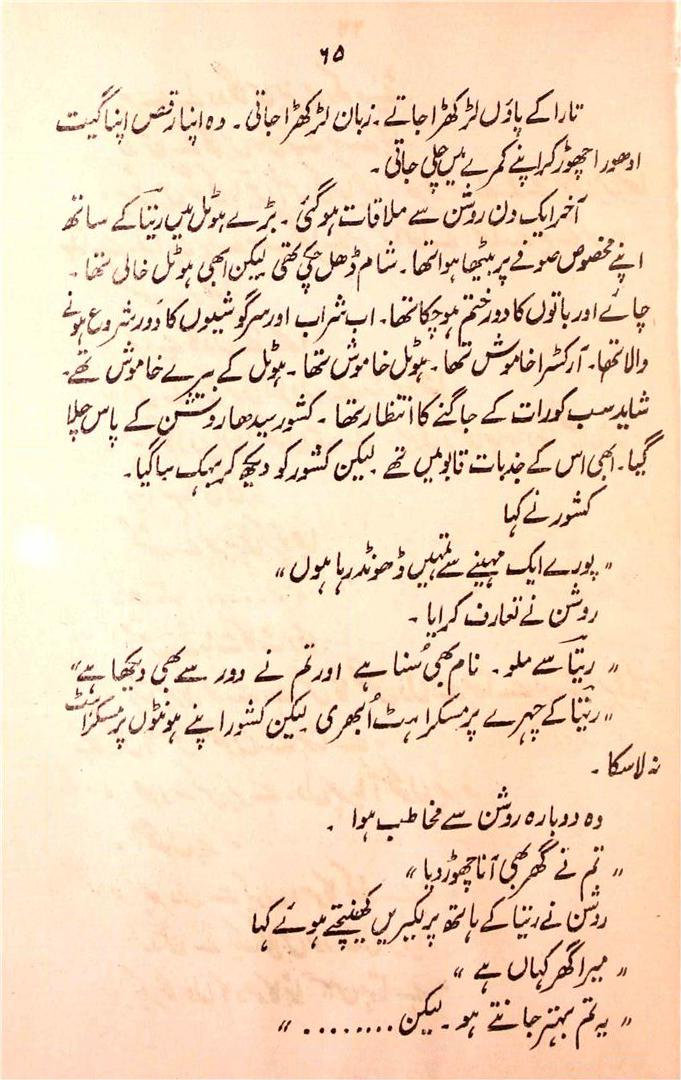 ۶۵
تارا کے پاؤں لڑکھڑا جاتے۔ زبان لڑکھڑا جاتی۔ وہ اپنا رقص اپنا گیت
ادھورا چھوڑ کر اپنے کمرے میں چلی جاتی۔
آخر ایک دن روشن سے ملاقات ہو گئی۔ بڑے ہوٹل میں ریتا کے ساتھ
اپنے مخصوص صوفے پر بیٹھا ہوا تھا۔ شام ڈھل چکی تھی لیکن ابھی ہوٹل خالی تھا۔
چائے اور باتوں کا دور ختم ہو چکا تھا۔ اب شراب اور سرگوشیوں کا دَور شروع ہونے
والا تھا۔ آرکسٹرا خاموش تھا۔ ہوٹل خاموش تھا۔ ہوٹل کے بیرے خاموش تھے۔
شاید سب کو رات کے جاگنے کا انتظار تھا۔ کشور سیدھا روشن کے پاس چلا
گیا۔ ابھی اس کے جذبات قابو میں تھے لیکن کشور کو دیکھ کر بہک سا گیا۔
کشور نے کہا
"پورے ایک مہینے سے تمہیں ڈھونڈ رہا ہوں"
روشن نے تعارف کرایا۔
"ریتا سے ملو۔ نام بھی سُنا ہے اور تم نے دور سے بھی دیکھا ہے"
"ریتا کے چہرے پر مسکراہٹ اُبھری لیکن کشور اپنے ہونٹوں پر مسکراہٹ
نہ لا سکا۔
وہ دوبارہ روشن سے مخاطب ہوا۔
"تم نے گھر بھی آنا چھوڑ دیا"
روشن نے ریتا کے ہاتھ پر لکیریں کھینچتے ہوئے کہا
"میرا گھر کہاں ہے"
"یہ تم بہتر جانتے ہو۔ لیکن ........"